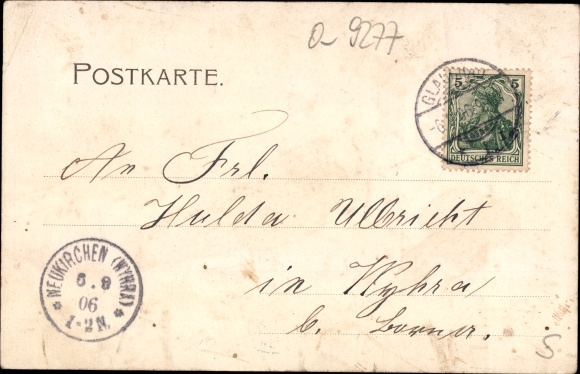 O-9277
POSTKARTE.
5 5
DEUTSCHES REICH
An Frl.
Hulda Ulbricht
in Wyhra
b. Borna.
NEUKIRCHEN (WYHRA)
6.9
06
1-2N.
S